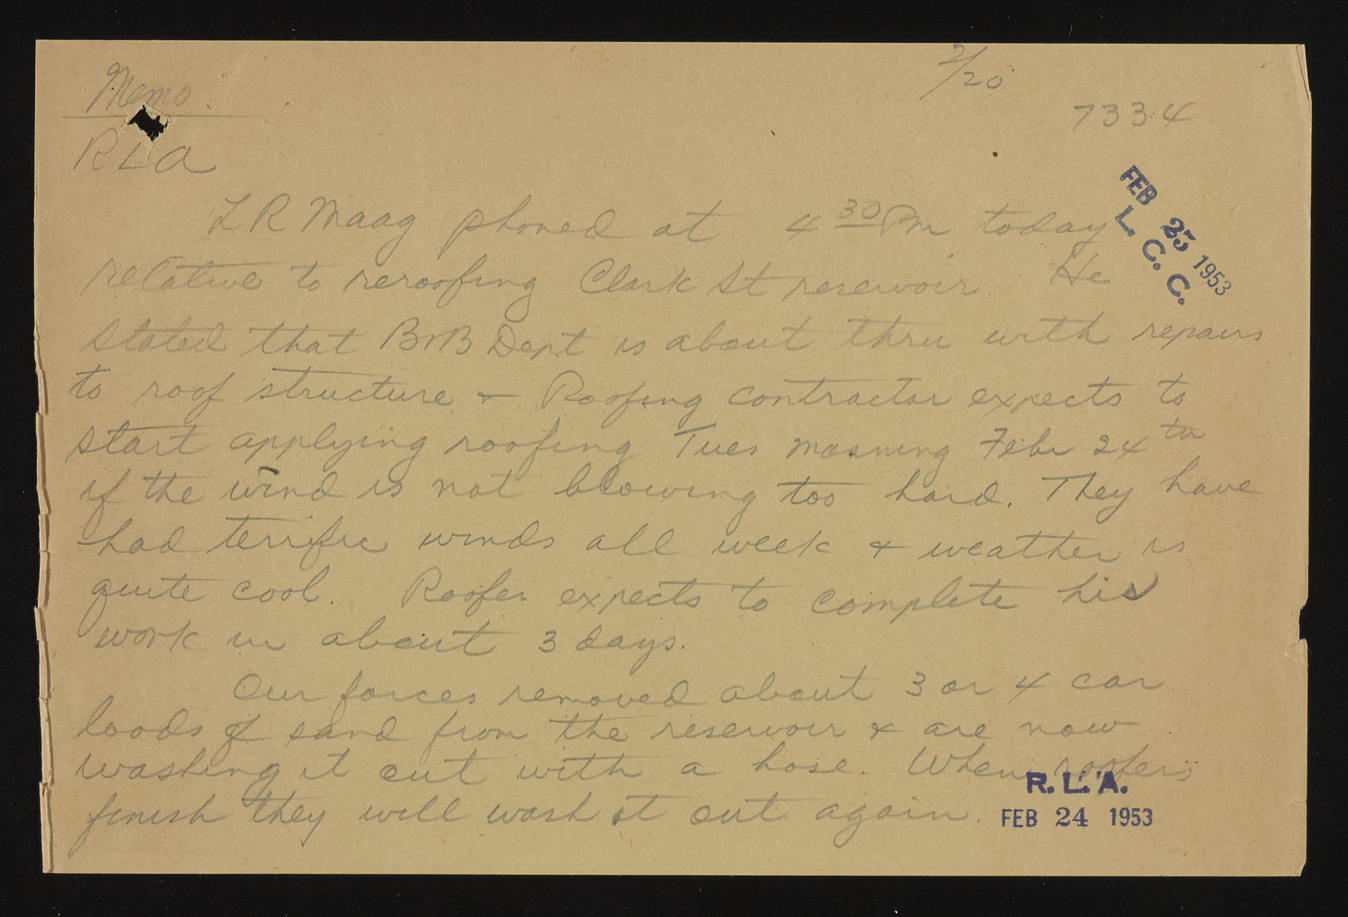 Memo
2/20
7334
RLA
FEB 25 1953
L. C. C.
L R Maag phoned at 4 30 Pm today
relative to reroofing Clark St reservoir. He
stated that B&B Dept is about thru with repairs
to roof structure & Roofing contractor expects to
start applying roofing Tues morning Febr 24th
if the wind is not blowing too hard. They have
had terrific winds all week & weather is
quite cool. Roofer expects to complete his
work in about 3 days.
Our forces removed about 3 or 4 car
loads of sand from the reservoir & are now
washing it out with a hose. When roofers
finish they will wash it out again.
R. L. A.
FEB 24 1953